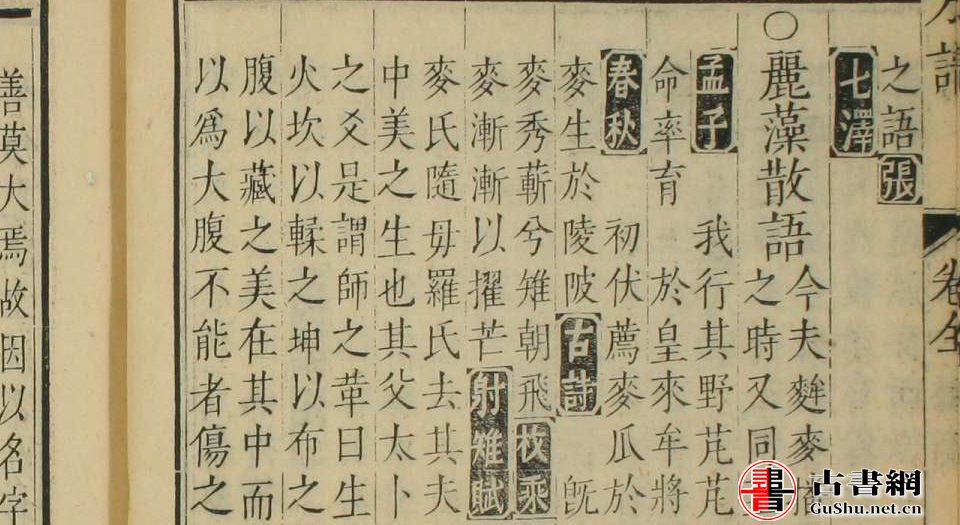 譜
卷全
之語 張
七澤
○麗藻散語 今夫麰麥
之時又同
孟子 我行其野芃芃
命率育 於皇來牟將
春秋 初伏薦麥瓜於
麥生於陵陂 古詩 既
麥秀蔪兮雉朝飛 枚乘
麥漸漸以擢芒 射雉賦
麥氏隨毋羅氏去其夫
中美之生也其父太卜
之爻是謂師之革曰生
火坎以輮之坤以布之
腹以藏之美在其中而
以爲大腹不能者傷之
善莫大焉故因以名字
書 古書網
GuShu.net.cn